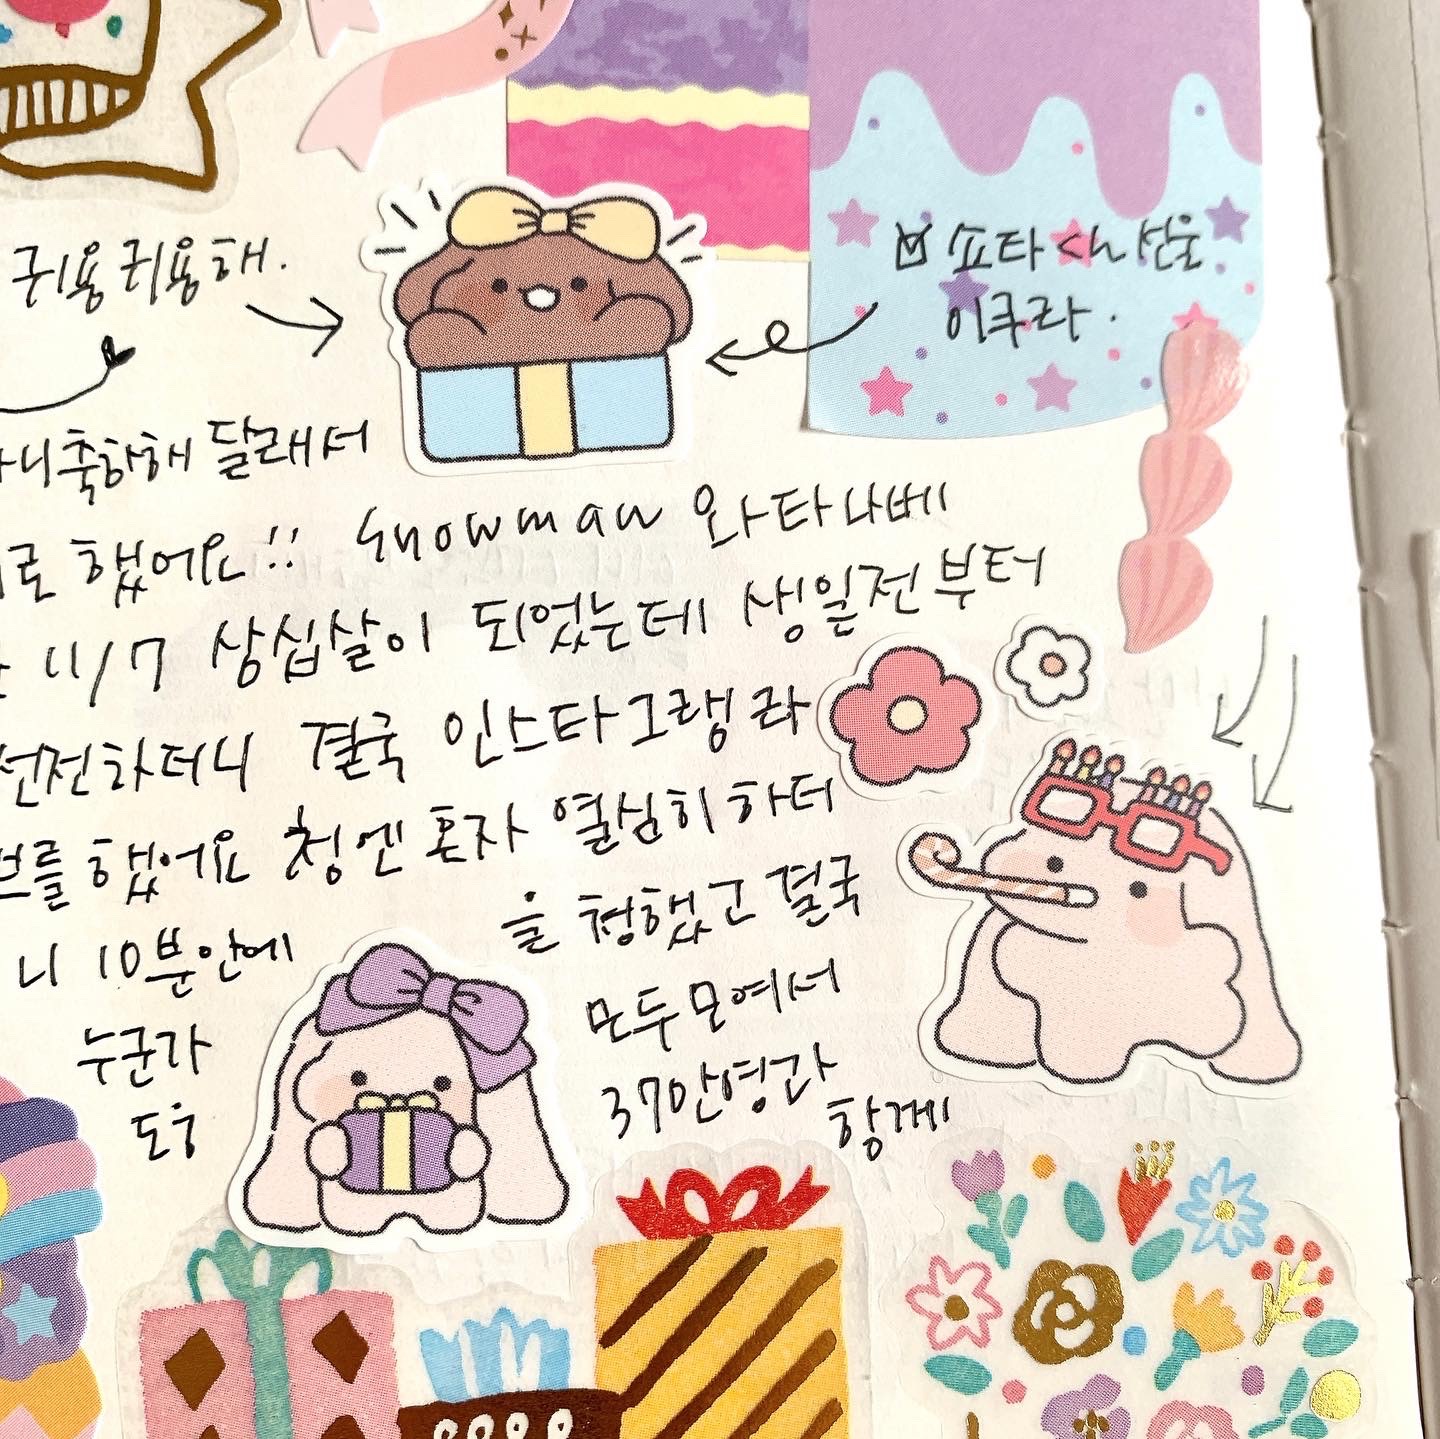 귀용귀용해.
쇼타くん 선물
이쿠라.
니 축하해달래서
로 했어요!! snowman 와타나베
11/7 상십살이 되었는데 생일전부터
선전하더니 결국 인스타그램 라
브를 했어요 첨엔 혼자 열심히 하더
니 10분안에
을 청했고 결국
누군가
모두모여서
도움
37만명간
함께